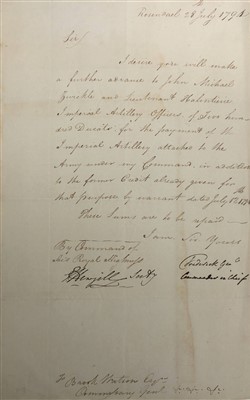 28 July 1794
Sir/
I desire you will make
a further advance to John Michael
and Lieutenant
Imperial Artillery Officers, of Five
and Ducats, for the payment of the
Imperial Artillery attached to the
Army under my Command, in addition
to the former Credit already given for
that purpose by warrant dated July
These Sums are to be repaid —
I am Sir Yours
By Command of
His Royal Highness
Frederick
Commander in Chief
Secty
To Brook Watson Esqr.
Commissary Genl.